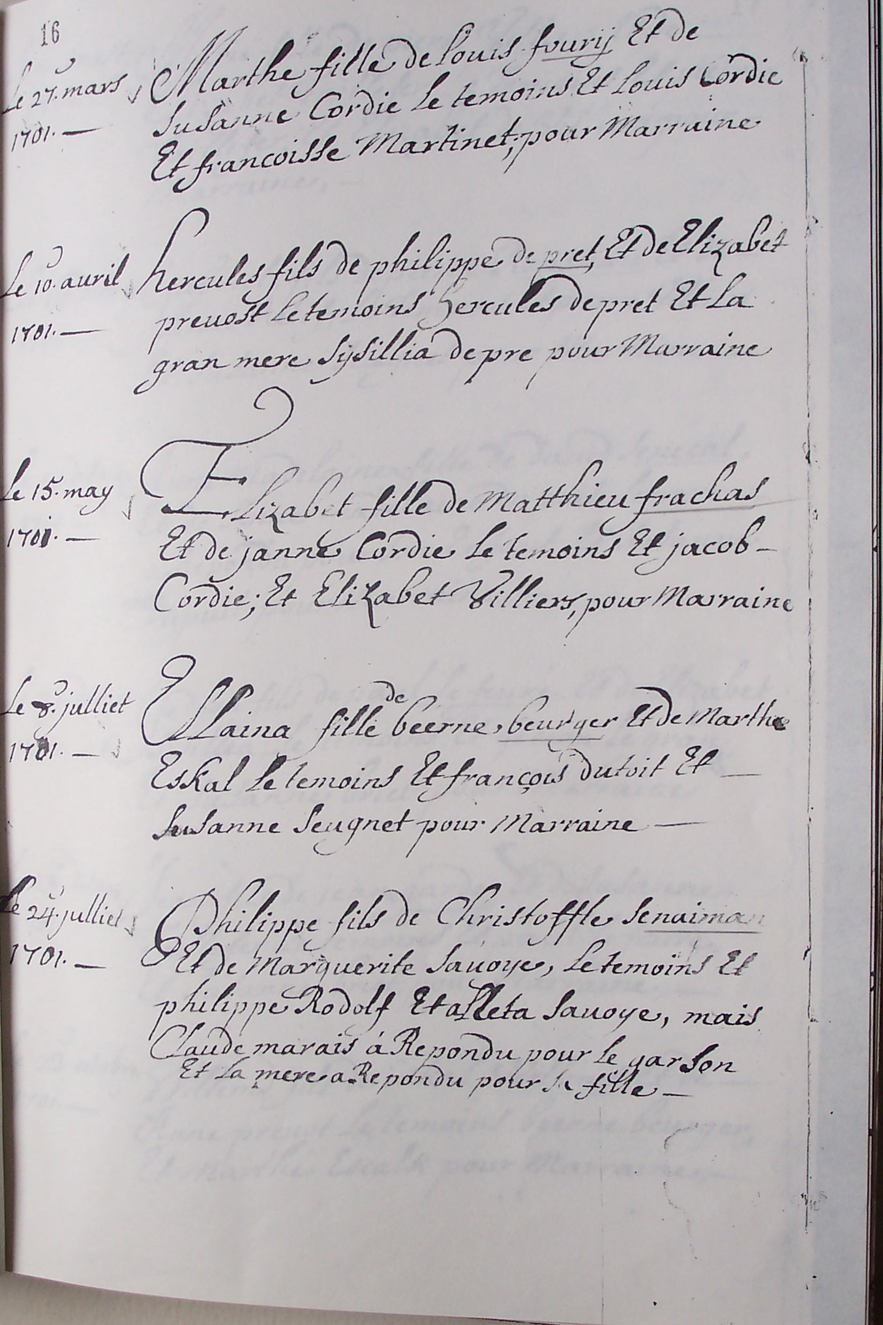 16
Le 27. mars
1701. —
Marthe fille de Louis fourij Et de
Susanne Cordie Le temoins Et Louis Cordie
Et francoisse Martinet, pour Marraine
Le 10. auril
1701. —
hercules fils de philippe de pret, Et de Elizabet
preuost Le temoins hercules de pret Et La
gran mere Sysillia de pre pour Marraine
Le 15. may
1701. —
Elizabet fille de Matthieu frachas
Et de janne Cordie Le temoins Et jacob —
Cordie; Et Elizabet Villiers, pour Marraine
Le 8. julliet
1701. —
Ellaina fille de beerne beurger Et de Marthe
Eskal Le temoins Et françois dutoit Et —
Susanne Seugnet pour Marraine —
Le 24. julliet
1701. —
Philippe fils de Christoffle Senaiman
Et de Marguerite Sauoye, Le temoins Et
philippe Rodolf Et alleta Sauoye, mais
Claude marais á Repondu pour Le garson
Et La mere a Repondu pour fille —